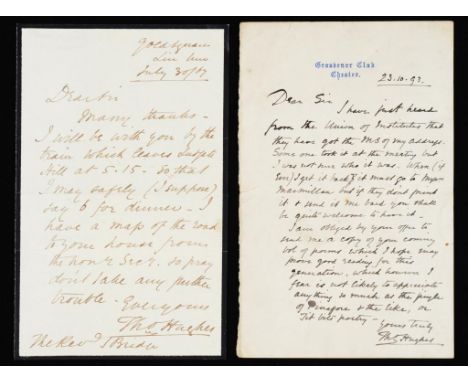 July 30/67
Dear Sir
Many thanks -
I will be with you by the
train which leaves Ludgate
Hill at 5-15 - so that
I may safely (I suppose)
say 6 for dinner - I
have a map of the road
to your house from
the hon. Secy. so pray
don't take any further
trouble - Ever yours
Thos Hughes
The Revd J Bridges
Grosvenor Club
Chester.
23.10.93.
Dear Sir
I have just heard
from the Union of Institutes that
they have got the MS of my address.
Some one took it at the meeting but
I was not sure who it was. When (if
ever) I get it back it must go to Messrs
Macmillan but if they don't print
it & send it me back you shall
be quite welcome to have it -
I am obliged by your offer to
send me a copy of your coming
vol of poems which I hope may
prove good reading for this
generation, which however I
fear is not likely to appreciate
anything so much as the
of Pinafore & the like, or
Tit Bits poetry -
Yours truly
Thos Hughes